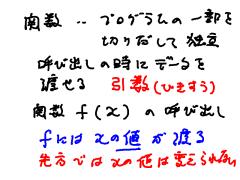 関数 ‥ プログラムの一部を
切りだして独立
呼び出しの時にデータを
渡せる 引数(ひきすう)
関数 f(x) の呼び出し
fにはxの値が渡る
先方ではxの値は変えられない